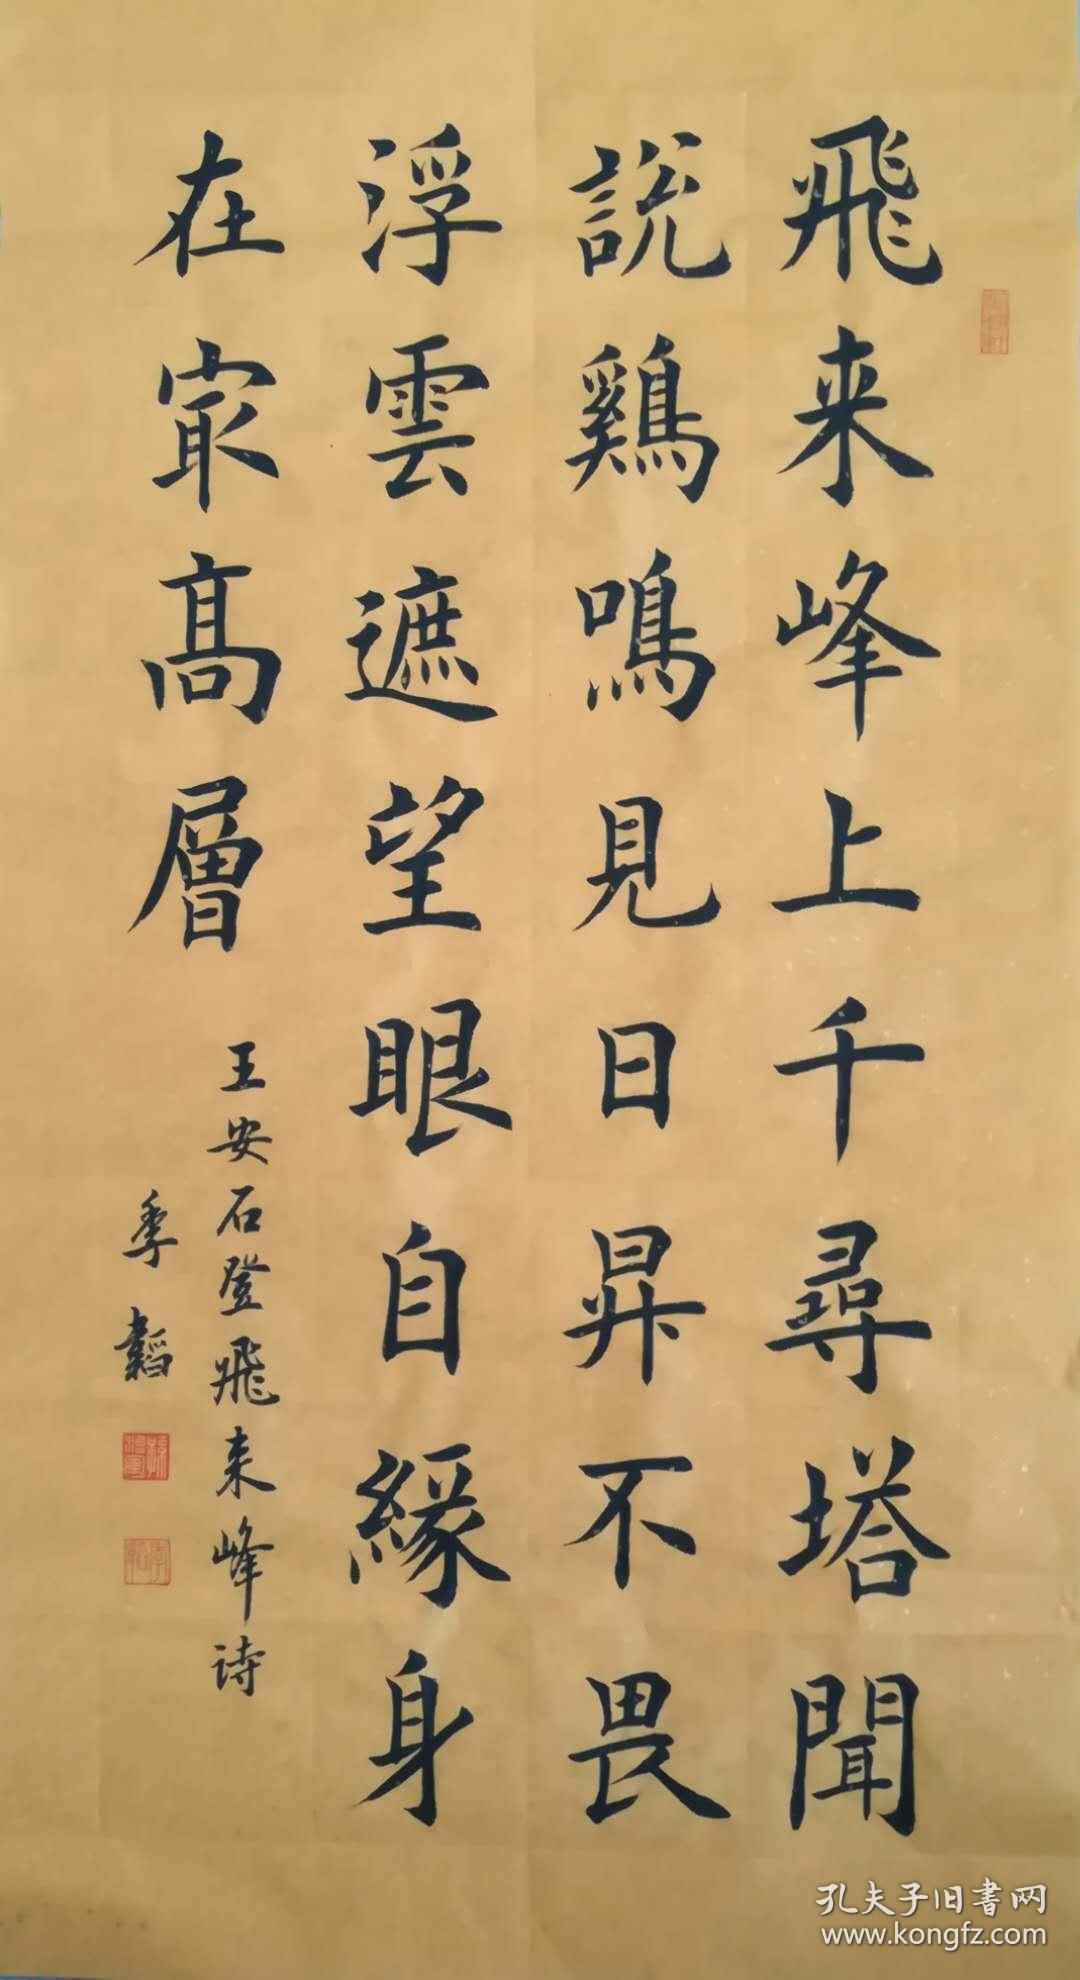 飛来峰上千尋塔聞
說鷄鳴見日昇不畏
浮雲遮望眼自緣身
在冣高層
王安石登飛来峰诗
季韜
孔夫子旧書网
www.kongfz.com